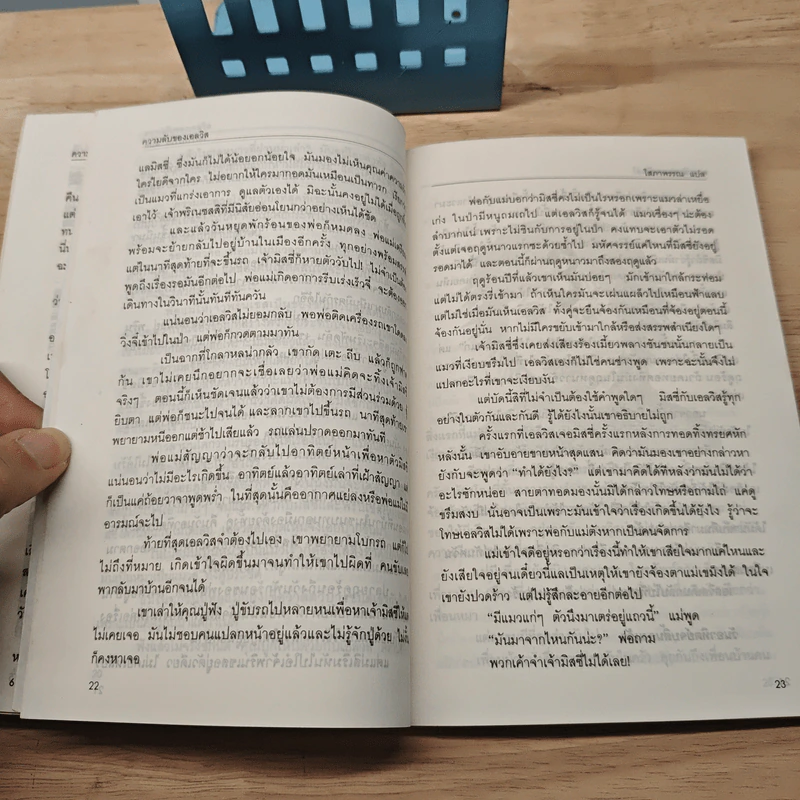 ความลับของเอลวิส
แลมิสซี่ ซึ่งมันก็ไม่ได้น้อยอกน้อยใจ มันมองไม่เห็นคุณค่าความ
ใครใยดีจากใคร ไม่อยากให้ใครมากอดมันเหมือนเป็นทารก
เป็นแมวที่แกร่งเอาการ ดูแลตัวเองได้ มิฉะนั้นคงอยู่ไม่ได้เมื่อ
เอาไว้ เจ้าพริณซสสิที่มีนิสัยอ่อนโยนกว่าอย่างเห็นได้ชัด
และแล้ววันหยุดพักร้อนของพ่อก็หมดลง พ่อแม่
พร้อมจะย้ายกลับไปอยู่บ้านในเมืองอีกครั้ง ทุกอย่างพร้อม
แต่ในนาทีสุดท้ายที่จะขึ้นรถ เจ้ามิสซี่ก็หายตัววับไป! ไม่จำเป็น
พูดถึงเรื่องรอมันอีกต่อไป พ่อแม่เกิดอาการรีบเร่งเร็วจี๋ จะต้อง
เดินทางในวินาทีนั้นทันทีทันควัน
แน่นอนว่าเอลวิสไม่ยอมกลับ พอพ่อติดเครื่องรถเขาโดด
วิ่งจี๋เข้าไปในป่า แต่พ่อก็กวดตามมาทัน
เป็นฉากที่โกลาหลน่ากลัว เขากัด เตะ ถีบ แล้วก็ถูก
กัน เขาไม่เคยนึกอยากจะเชื่อเลยว่าพ่อแม่คิดจะทิ้งเจ้ามิสซี่
จริงๆ ตอนนี้ก็เห็นชัดเจนแล้วว่าเขาไม่ต้องการมีส่วนร่วมด้วย
ยิบตา แต่พ่อก็ชนะไปจนได้ และลากเขาไปขึ้นรถ นาทีสุดท้าย
พยายามหนีออกแต่ช้าไปเสียแล้ว รถแล่นปราดออกมาทันที
พ่อแม่สัญญาว่าจะกลับไปอาทิตย์หน้าเพื่อหาตัวมิสซี่
แน่นอนว่าไม่มีอะไรเกิดขึ้น อาทิตย์แล้วอาทิตย์เล่าที่เฝ้าสัญญา
ก็เป็นแค่ถ้อยวาจาพูดพร่ำ ในที่สุดนั้นคืออากาศแย่ลงหรือพ่อแม่ไม่มี
อารมณ์จะไป
ท้ายที่สุดเอลวิสจำต้องไปเอง เขาพยายามโบกรถ แต่
ไม่ถึงที่หมาย เกิดเข้าใจผิดขึ้นมาจนทำให้เขาไปผิดที่ คนขับ
พากลับมาบ้านอีกจนได้
เขาเล่าให้คุณปู่ฟัง ปู่ขับรถไปหลายหนเพื่อหาเจ้ามิสซี่ให้
ไม่เคยเจอ มันไม่ชอบคนแปลกหน้าอยู่แล้วและไม่รู้จักปู่ด้วย
ก็คงหาเจอ
22
โสภาพรรณ แปล
พ่อกับแม่บอกว่ามิสซี่คงไม่เป็นไรหรอกเพราะแมวล่าเหยื่อ
เก่ง ในป่ามีหนูถมเถไป แต่เอลวิสก็รู้จนได้ แมวเชื่องๆ น่ะต้อง
ลำบากแน่ เพราะไม่ชินกับการอยู่ในป่า คงแทบจะเอาตัวไม่รอด
ตั้งแต่เจอฤดูหนาวแรกซะด้วยซ้ำไป มหัศจรรย์แค่ไหนที่มิสซี่ยังอยู่
รอดมาได้ และตอนนี้ก็ผ่านฤดูหนาวมาถึงสองฤดูแล้ว
ฤดูร้อนปีที่แล้วเขาเห็นมันบ่อยๆ มักเข้ามาใกล้กระท่อม
แต่ไม่ได้ตรงรี่เข้ามา ถ้าเห็นใครมันจะเผ่นแผล็วไปเหมือนฟ้าแลบ
แต่ไม่ใช่เมื่อมันเห็นเอลวิส ทั้งคู่จะยืนจ้องกันเหมือนที่จ้องอยู่ตอนนี้
จ้องกันอยู่นั่น หากไม่มีใครขยับเข้ามาใกล้หรือส่งสรรพสำเนียงใดๆ
เจ้ามิสซี่ซึ่งเคยส่งเสียงร้องเมี้ยวพลางซนซนนั้นกลายเป็น
แมวที่เงียบขรึมไป เอลวิสเองก็ไม่ใช่คนช่างพูด เพราะฉะนั้นจึงไม่
แปลกอะไรที่เขาจะเงียบงัน
แต่บัดนี้สิที่ไม่จำเป็นต้องใช้คำพูดใดๆ มิสซี่กับเอลวิสรู้ทุก
อย่างในตัวกันและกันดี รู้ได้ยังไงนั้นเขาอธิบายไม่ถูก
ครั้งแรกที่เอลวิสเจอมิสซี่ครั้งแรกหลังการทอดทิ้งทรยศหัก
หลังนั้น เขาอับอายขายหน้าสุดแสน คิดว่ามันมองเขาอย่างกล่าวหา
ยังกับจะพูดว่า “ทำได้ยังไง?” แต่เขามาคิดได้ทีหลังว่ามันไม่ได้ว่า
อะไรซักหน่อย สายตาทอดมองนั้นมิได้กล่าวโทษหรือถามไถ่ แค่ดู
ขรึมสงบ นั่นอาจเป็นเพราะมันเข้าใจว่าเรื่องเกิดขึ้นได้ยังไง รู้ว่าจะ
โทษเอลวิสไม่ได้เพราะพ่อกับแม่ตังหากเป็นคนจัดการ
แม่เข้าใจดีอยู่หรอกว่าเรื่องนี้ทำให้เขาเสียใจมากแค่ไหนและ
ยังเสียใจอยู่จนเดี๋ยวนี้แลเป็นเหตุให้เขายังจ้องตาแม่เขม็งได้ ในใจ
เขายังปวดร้าว แต่ไม่รู้สึกละอายอีกต่อไป
“มีแมวแก่ๆ ตัวนึงมาเตร่อยู่แถวนี้” แม่พูด
“มันมาจากไหนกันน่ะ?” พ่อถาม
พวกเค้าจำเจ้ามิสซี่ไม่ได้เลย!
23